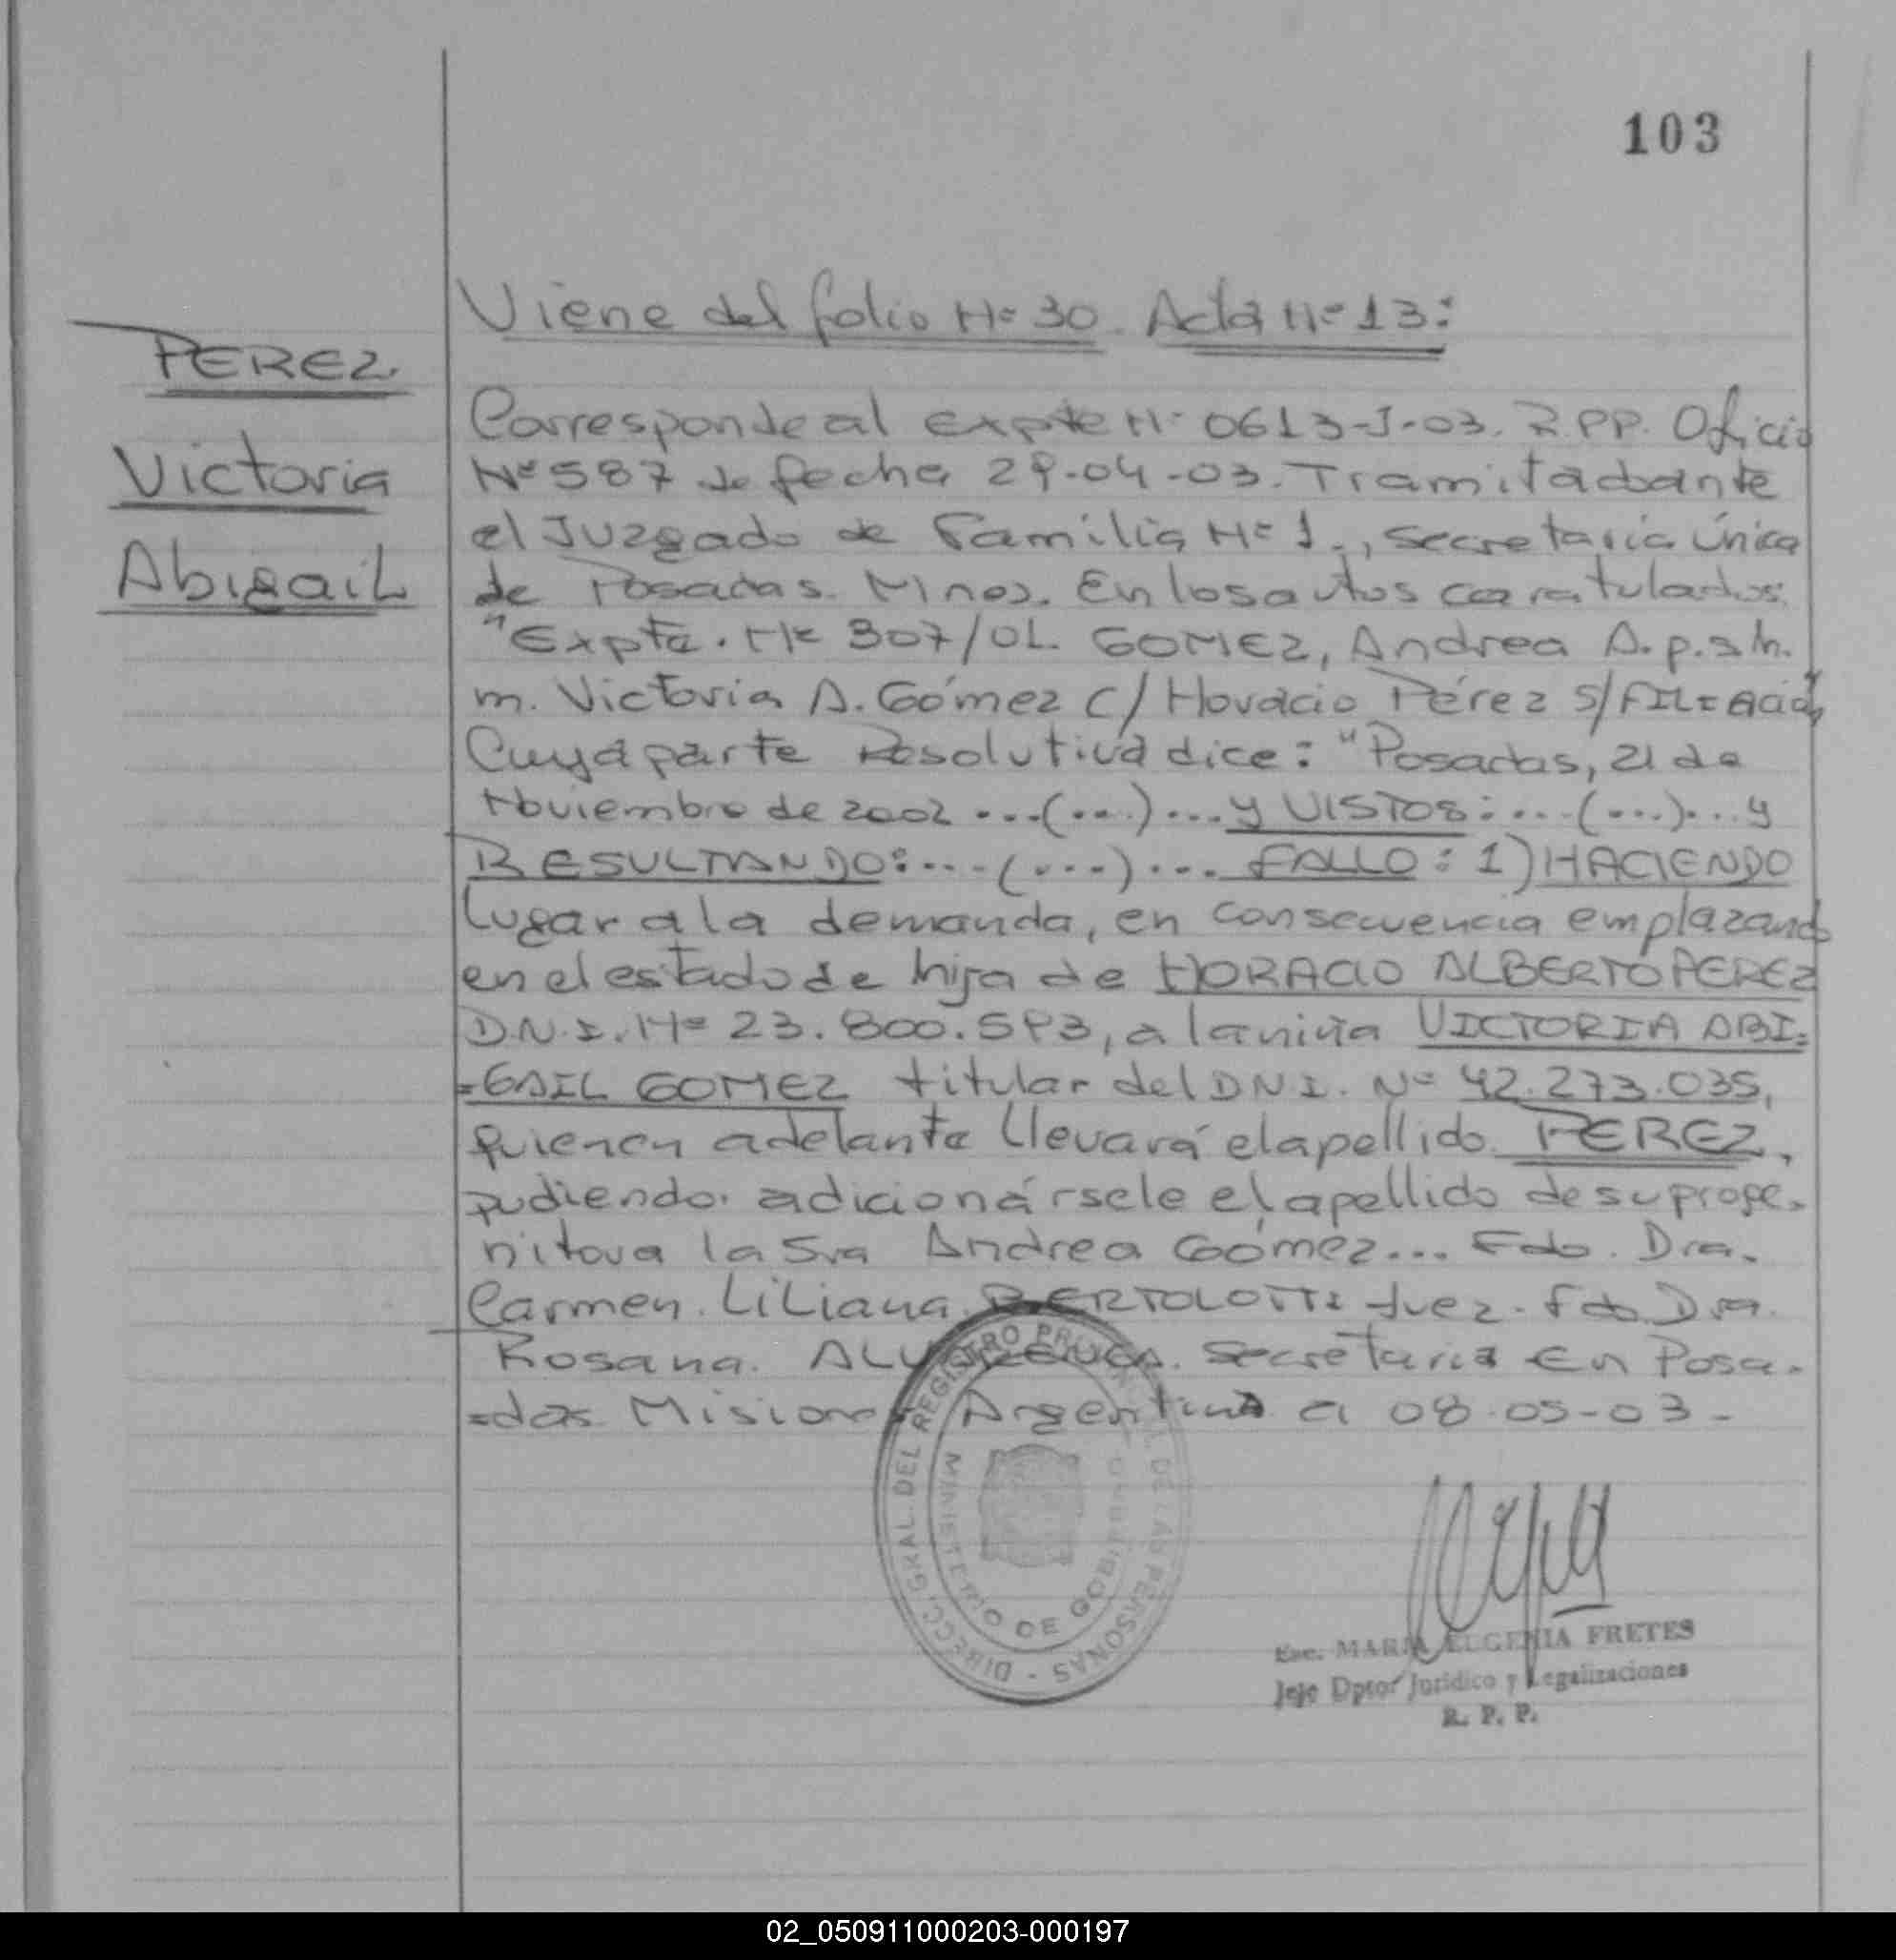 103
Viene del folio Nº 30. Acta Nº 13:
PEREZ
Victoria
Abigail
Corresponde al expte Nº 0613-J-03. R.PP. Oficio
Nº 587 de fecha 29-04-03. Tramitado ante
el Juzgado de Familia Nº 1., secretaría única
de Posadas. Mnes. En los autos caratulados:
"Expte. Nº 307/02. GOMEZ, Andrea A. p.s.h.
m. Victoria A. Gómez C/ Horacio Pérez S/FILIACIÓN"
Cuya parte Resolutiva dice: "Posadas, 21 de
Noviembre de 2002 ...(...)... y VISTOS: ...(...)... y
RESULTANDO: ...(...)... FALLO: 1) HACIENDO
lugar a la demanda, en consecuencia emplazando
en el estado de hija de HORACIO ALBERTO PEREZ
D.N.I. Nº 23.800.593, a la niña VICTORIA ABI=
=GAIL GOMEZ titular del DNI. Nº 42.273.035,
quien en adelante llevará el apellido PEREZ,
pudiendo adicionársele el apellido de su proge-
nitora la Sra Andrea Gómez... Fdo. Dra.
Carmen. Liliana. BERTOLOTTI Juez. Fdo. Dra.
Rosana. Secretaria En Posa-
=das Misiones Argentina a 08-05-03-
DIRECC. GRAL. DEL REGISTRO PROVINCIAL DE LAS PERSONAS
MINISTERIO DE GOBIERNO
Esc. MARIA EUGENIA FRETES
Jefe Dptor Jurídico y Legalizaciones
R. P. P.
02_050911000203-000197